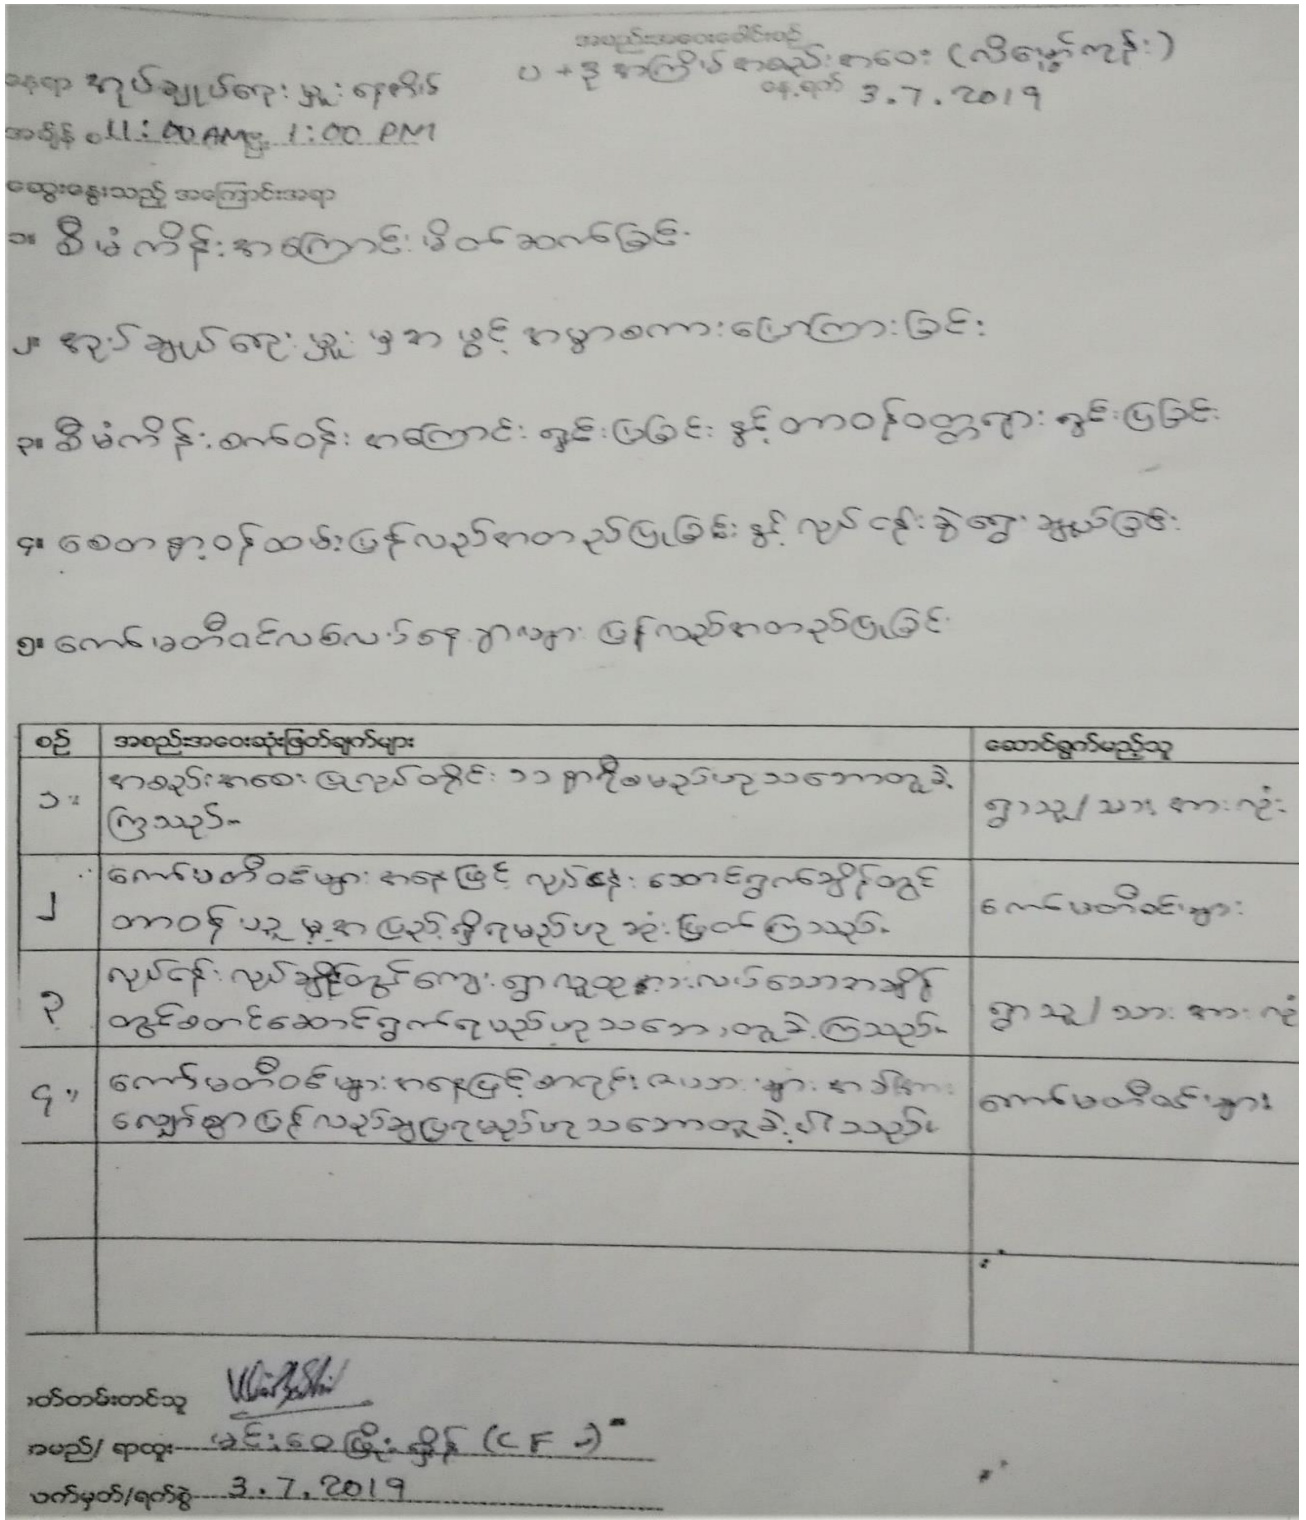 အစည်းအဝေးခေါင်းစဉ်
ပ + ဒု အကြိမ် အစည်းအဝေး (လိမ္မော်ကုန်း)
နေရာ အုပ်ချုပ်ရေးမှူးနေအိမ်
နေ့ရက် 3.7.2019
အချိန် 11:00 AM မှ 1:00 PM
ဆွေးနွေးသည့် အကြောင်းအရာ
၁။ စီမံကိန်းအကြောင်း မိတ်ဆက်ခြင်း
၂။ အုပ်ချုပ်ရေးမှူးမှ အဖွင့် အမှာစကားပြောကြားခြင်း
၃။ စီမံကိန်းစက်ဝန်းအကြောင်း ရှင်းပြခြင်း နှင့် တာဝန်ဝတ္တရား ရှင်းပြခြင်း
၄။ စေတနာ့ဝန်ထမ်းပြန်လည်အတည်ပြုခြင်း နှင့် လုပ်ငန်းခွဲရွေးချယ်ခြင်း
၅။ ကော်မတီဝင်လစ်လပ်နေရာများ ပြန်လည်အတည်ပြုခြင်း
စဉ် အစည်းအဝေးဆုံးဖြတ်ချက်များ ဆောင်ရွက်မည့်သူ
၁။ အစည်းအဝေးပြုလုပ်တိုင်း ၁၁ နာရီစမည်ဟု သဘောတူခဲ့
ကြသည်။ ရွာသူ/သားအားလုံး
၂ ကော်မတီဝင်များအနေဖြင့် လုပ်ငန်းဆောင်ရွက်ချိန်တွင်
တာဝန်ယူမှုအပြည့်ရှိရမည်ဟု ဆုံးဖြတ်ကြသည်။ ကော်မတီဝင်များ
၃ လုပ်ငန်းလုပ်ချိန်တွင် ကျေးရွာလူထုအားလပ်သောအချိန်
တွင်စတင်ဆောင်ရွက်ရမည်ဟု သဘောတူခဲ့ကြသည်။ ရွာသူ/သားအားလုံး
၄။ ကော်မတီဝင်များအနေဖြင့် စာရင်းဇယားများအခါအား
လျှော်စွာပြန်လည်ချပြရမည်ဟု သဘောတူခဲ့ပါသည်။ ကော်မတီဝင်များ
မှတ်တမ်းတင်သူ
အမည်/ ရာထူး မင်းဝေဖြိုးရှိန် (CF)
လက်မှတ်/ရက်စွဲ 3.7.2019